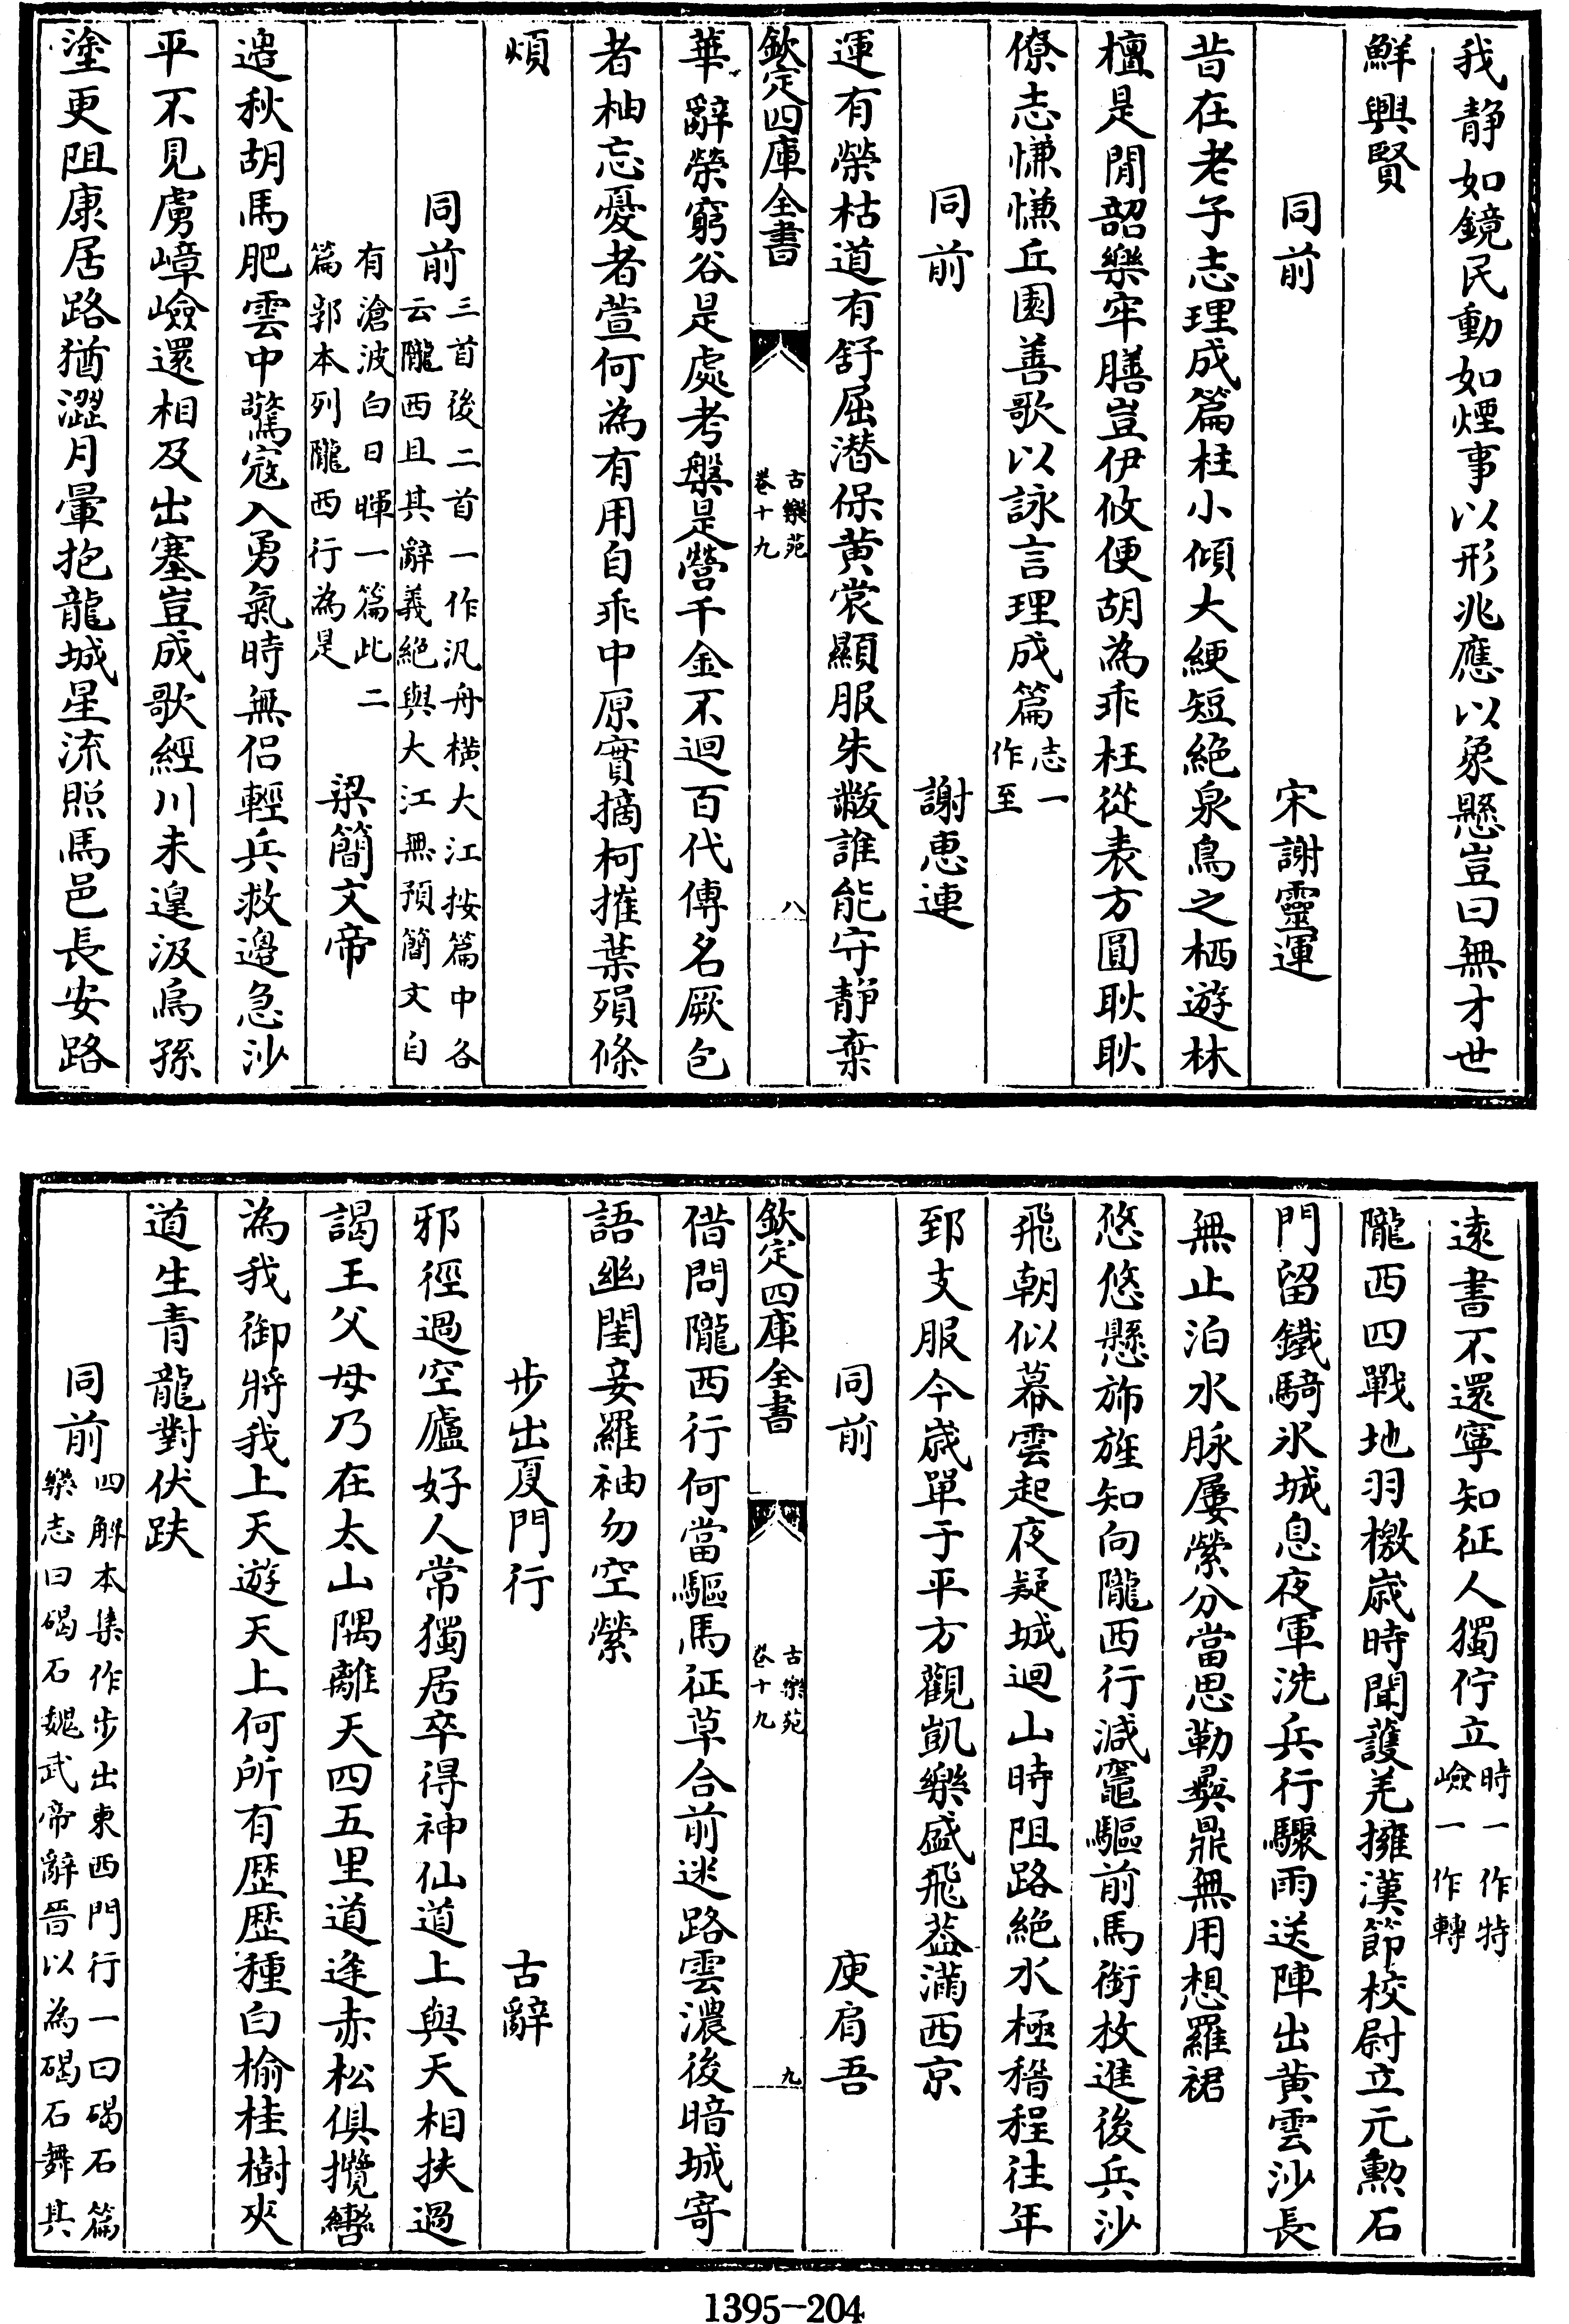 我靜如鏡民動如煙事以形兆應以象懸豈曰無才世
鮮興賢
同前 宋謝靈運
昔在老子志理成篇柱小傾大綆短絶泉鳥之栖遊林
檀是閒韶樂牢膳豈伊攸便胡為乖枉從表方圓耿耿
僚志慊慊丘園善歌以詠言理成篇志一
作至
同前 謝惠連
運有榮枯道有舒屈潜保黄裳顯服朱黻誰能守靜棄
欽定四庫全書
古樂苑
卷十九
八
華辭榮窮谷是處考槃是營千金不迴百代傳名厥包
者柚忘憂者萱何為有用自乖中原實摘柯摧葉殞條
煩
同前三首後二首一作汎舟横大江按篇中各
云隴西且其辭義絶與大江無預簡文自
有滄波白日暉一篇此二
篇郭本列隴西行為是
梁簡文帝
邉秋胡馬肥雲中驚寇入勇氣時無侣輕兵救邊急沙
平不見虜嶂嶮還相及出塞豈成歌經川未遑汲烏孫
塗更阻康居路猶澀月暈抱龍城星流照馬邑長安路
逺書不還寧知征人獨佇立時一作特
嶮一作轉
隴西四戰地羽檄歲時聞護羌擁漢節校尉立元勲石
門留鐵騎氷城息夜軍洗兵行驟雨送陣出黄雲沙長
無止泊水脉屢縈分當思勒彞鼎無用想羅裙
悠悠懸斾旌知向隴西行減竈驅前馬銜枚進後兵沙
飛朝似幕雲起夜疑城迴山時阻路絶水極稽程往年
郅支服今歲單于平方觀凱樂盛飛葢滿西京
同前 庾肩吾
欽定四庫全書
古樂苑
卷十九
九
借問隴西行何當驅馬征草合前迷路雲濃後暗城寄
語幽閨妾羅袖勿空縈
步出夏門行 古辭
邪徑過空廬好人常獨居卒得神仙道上與天相扶過
謁王父母乃在太山隅離天四五里道逢赤松俱攬轡
為我御將我上天遊天上何所有歴歴種白榆桂樹夾
道生青龍對伏趺
同前四解本集作步出東西門行一曰碣石篇
樂志曰碣石魏武帝辭晉以為碣石舞其
1395-204